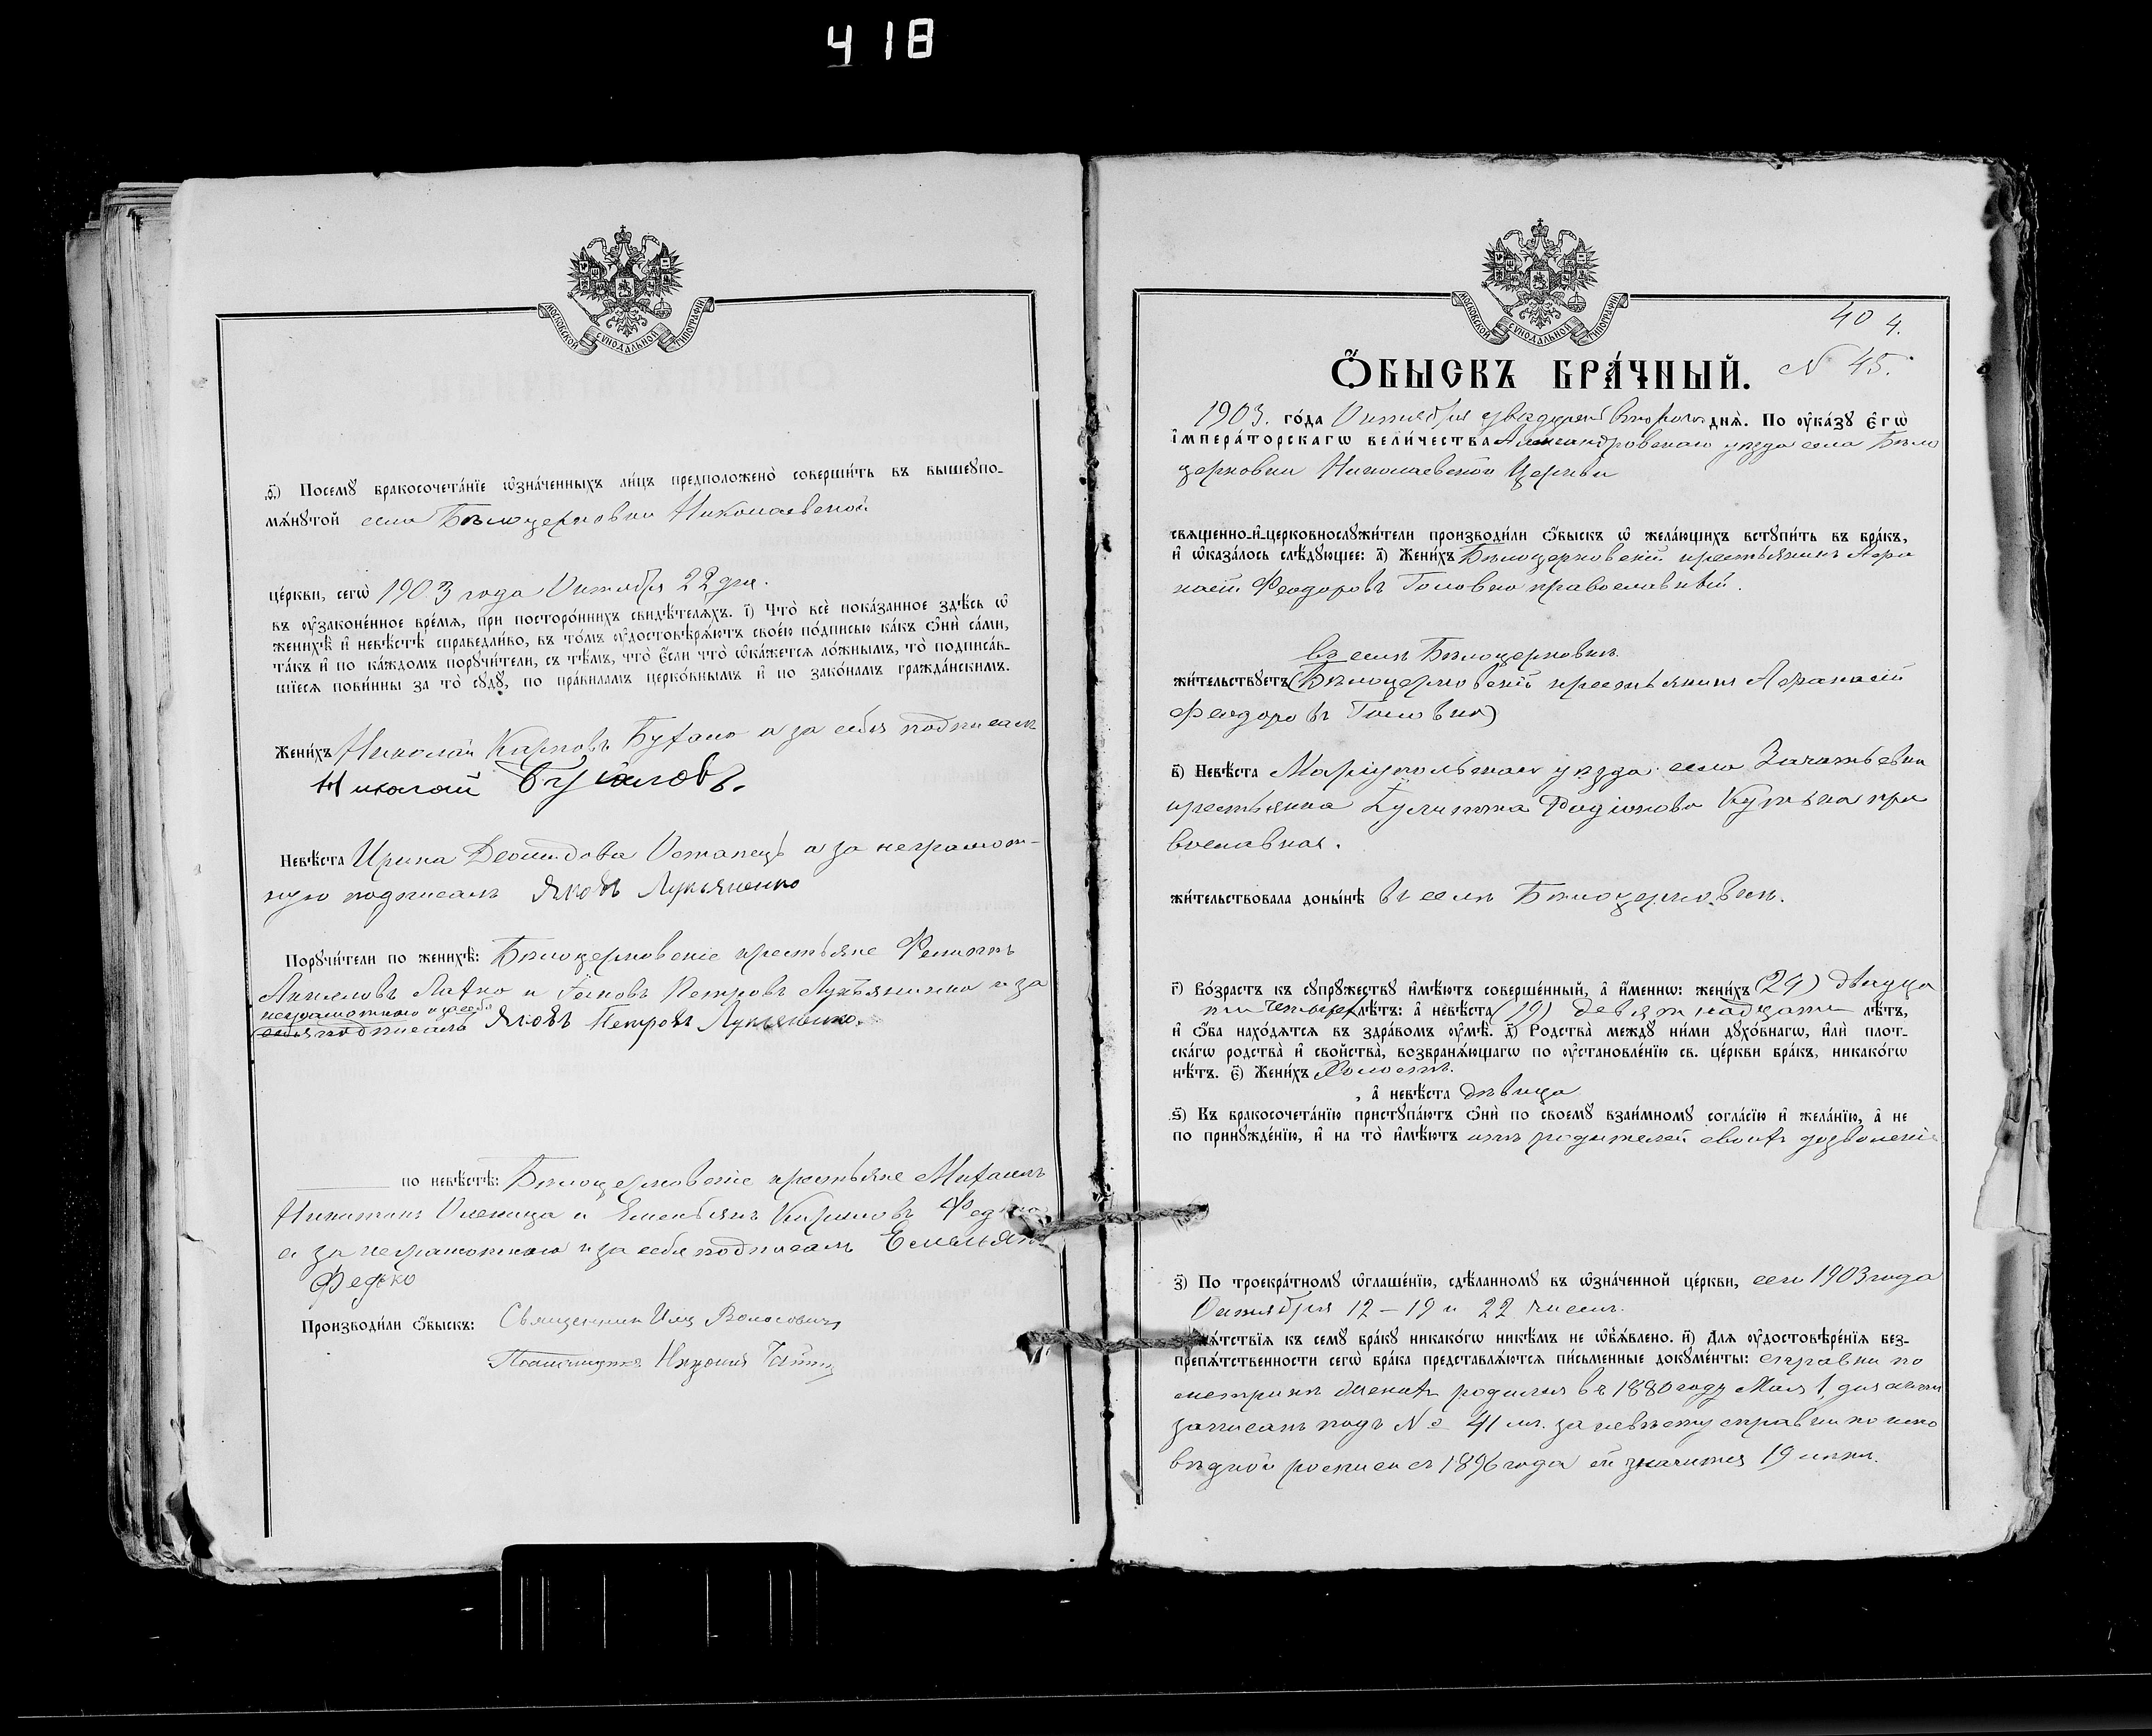 418
МОСКОВСКОЙ СѴНОДАЛЬНОЙ ТИПОГРАФІИ
ѳ҃) Посемꙋ бракосочета́нїе ѡ҆зна́ченныхъ ли́цъ предположено̀ соверши́ть въ вышеꙋпо-
мѧ́нꙋтой села Бѣлоцерковки Николаевской
це́ркви, сегѡ̀ 1903 года Октября 22 дня.
въ ᲂу҆зако́ненное вре́мѧ, при посторо́ннихъ свидѣ́телѧхъ. і҃) Что̀ всѐ пока́занное здѣ́сь ѡ҆
женихѣ̀ и҆ невѣ́стѣ справедли́во, въ то́мъ ᲂу҆достовѣрѧ́ютъ свое́ю по́дписью ка́къ ѻ҆нѝ са́ми,
та́къ и҆ по ка́ждомъ порꙋчи́тели, съ тѣ́мъ, что̀ є҆́сли что̀ ѡ҆ка́жетсѧ ло́жнымъ, то̀ подписа́в-
шїесѧ пови́нны за то̀ сꙋдꙋ̀, по пра́виламъ церко́внымъ и҆ по зако́намъ гражда́нскимъ.
Жени́хъ Николай Карповъ Бухало а за себя подписалъ
Николай Бухаловъ.
Невѣ́ста Ирина Остапецъ а за неграмот-
ную подписалъ Яковъ Лукьяненко
Порꙋчи́тели по женихѣ̀: Бѣлоцерковскіе крестьяне Филиппъ
Лахно и Іаковъ Петровъ Лукьяненко а за
неграмотного и за себя
себя подписалъ Яковъ Петровъ Лукьяненко.
по невѣ́стѣ: Бѣлоцерковскіе крестьяне Михаилъ
Никитинъ и Емельянъ Кириловъ Федко
а за неграмотного и за себя подписалъ Емельянъ
Федько
Производи́ли ѻ҆́быскъ: Священникъ Илія Волосовичъ
Псаломщикъ
МОСКОВСКОЙ СѴНОДАЛЬНОЙ ТИПОГРАФІИ
404.
Ѻ҆́БЫСКЪ БРА́ЧНЫЙ. N 45.
1903. го́да Октября двадцать второго днѧ̀. По ᲂу҆ка́зꙋ є҆гѡ̀
і҆мпера́торскагѡ вели́чества Александровского уѣзда села Бѣло
церковки Николаевской Церкви
свѧщенно-и҆-церковнослꙋжи́тели производи́ли ѻ҆́быскъ ѡ҆ жела́ющихъ встꙋпи́ть въ бра́къ,
и҆ ѡ҆каза́лось слѣ́дꙋющее: а҃) Жени́хъ Бѣлоцерковскій крестьянинъ Афа
насій Феодоровъ Головко православный.
въ селѣ Бѣлоцерковкѣ.
жи́тельствꙋетъ (Бѣлоцерковскій крестьянинъ Афанасій
Феодоровъ Головко)
в҃) Невѣ́ста Маріупольского уѣзда села Зачатьевки
крестьянка Родіонова пра
вославная.
жи́тельствовала доны́нѣ въ селѣ Бѣлоцерковкѣ.
г҃) Во́зрастъ къ сꙋпрꙋ́жествꙋ и҆мѣ́ютъ соверше́нный, а҆ и҆́меннѡ: жени́хъ (24) двадца
ти четырехъ лѣ́тъ: а҆ невѣ́ста (19) девятнадцати лѣ́тъ,
и҆ ѻ҆́ба нахо́дѧтсѧ въ здра́вомъ ᲂу҆мѣ̀. д҃) Родства̀ междꙋ ни́ми дꙋхо́внагѡ, и҆лѝ плот-
ска́гѡ родства̀ и҆ сво́йства, возбранѧ́ющагѡ по ᲂу҆становле́нїю св. це́ркви бра́къ, никако́гѡ
нѣ́тъ. є҃) Жени́хъ Холостъ.
, а҆ невѣ́ста дѣвица
ѕ҃) Къ бракосочета́нїю пристꙋпа́ютъ ѻ҆нѝ по своемꙋ̀ взаи́мномꙋ согла́сїю и҆ жела́нїю, а҆ не
по принꙋжде́нїю, и҆ на то̀ и҆мѣ́ютъ отъ родителей своихъ дозволеніе
з҃) По троекра́тномꙋ ѡ҆глаше́нїю, сдѣ́ланномꙋ въ ѡ҆зна́ченной це́ркви, сего 1903 года
Октября 12 – 19 и 22 чиселъ.
пѧ́тствїѧ къ семꙋ̀ бра́кꙋ никако́гѡ никѣ́мъ не ѡ҆б̾ѧ́влено. и҃) Для ᲂу҆достовѣре́нїѧ без-
препѧ́тственности сегѡ̀ бра́ка представлѧ́ютсѧ пи́сьменные докꙋме́нты: справки по
метрикѣ женихъ родился въ 1880 году Мая 1 дня
записанъ подъ № 41 за невѣсту справки по испо
вѣдной росписи съ 1896 года ей значится 19 лѣтъ.